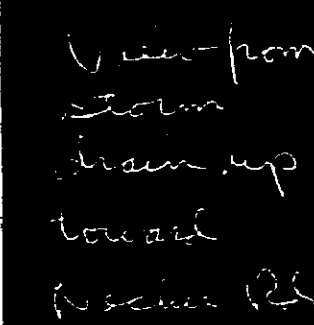 View from
storm
drain up
toward
Rd